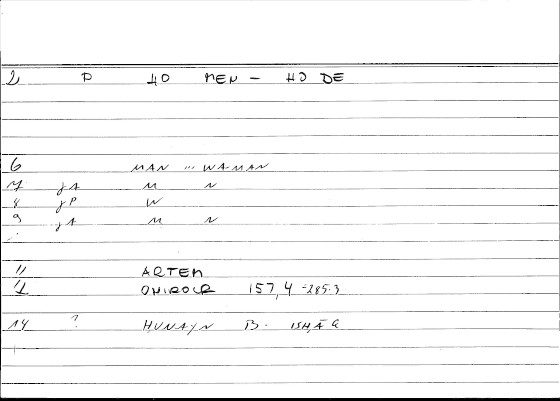 2 P HO MEN - HO DE
6 MAN ... WA-MAN
7 jA M N
8 jP W
9 jA M N
11 ARTEM
12 ONIROCR 157,4 - 285.3
14 ? HUNAYN B. ISḤĀQ